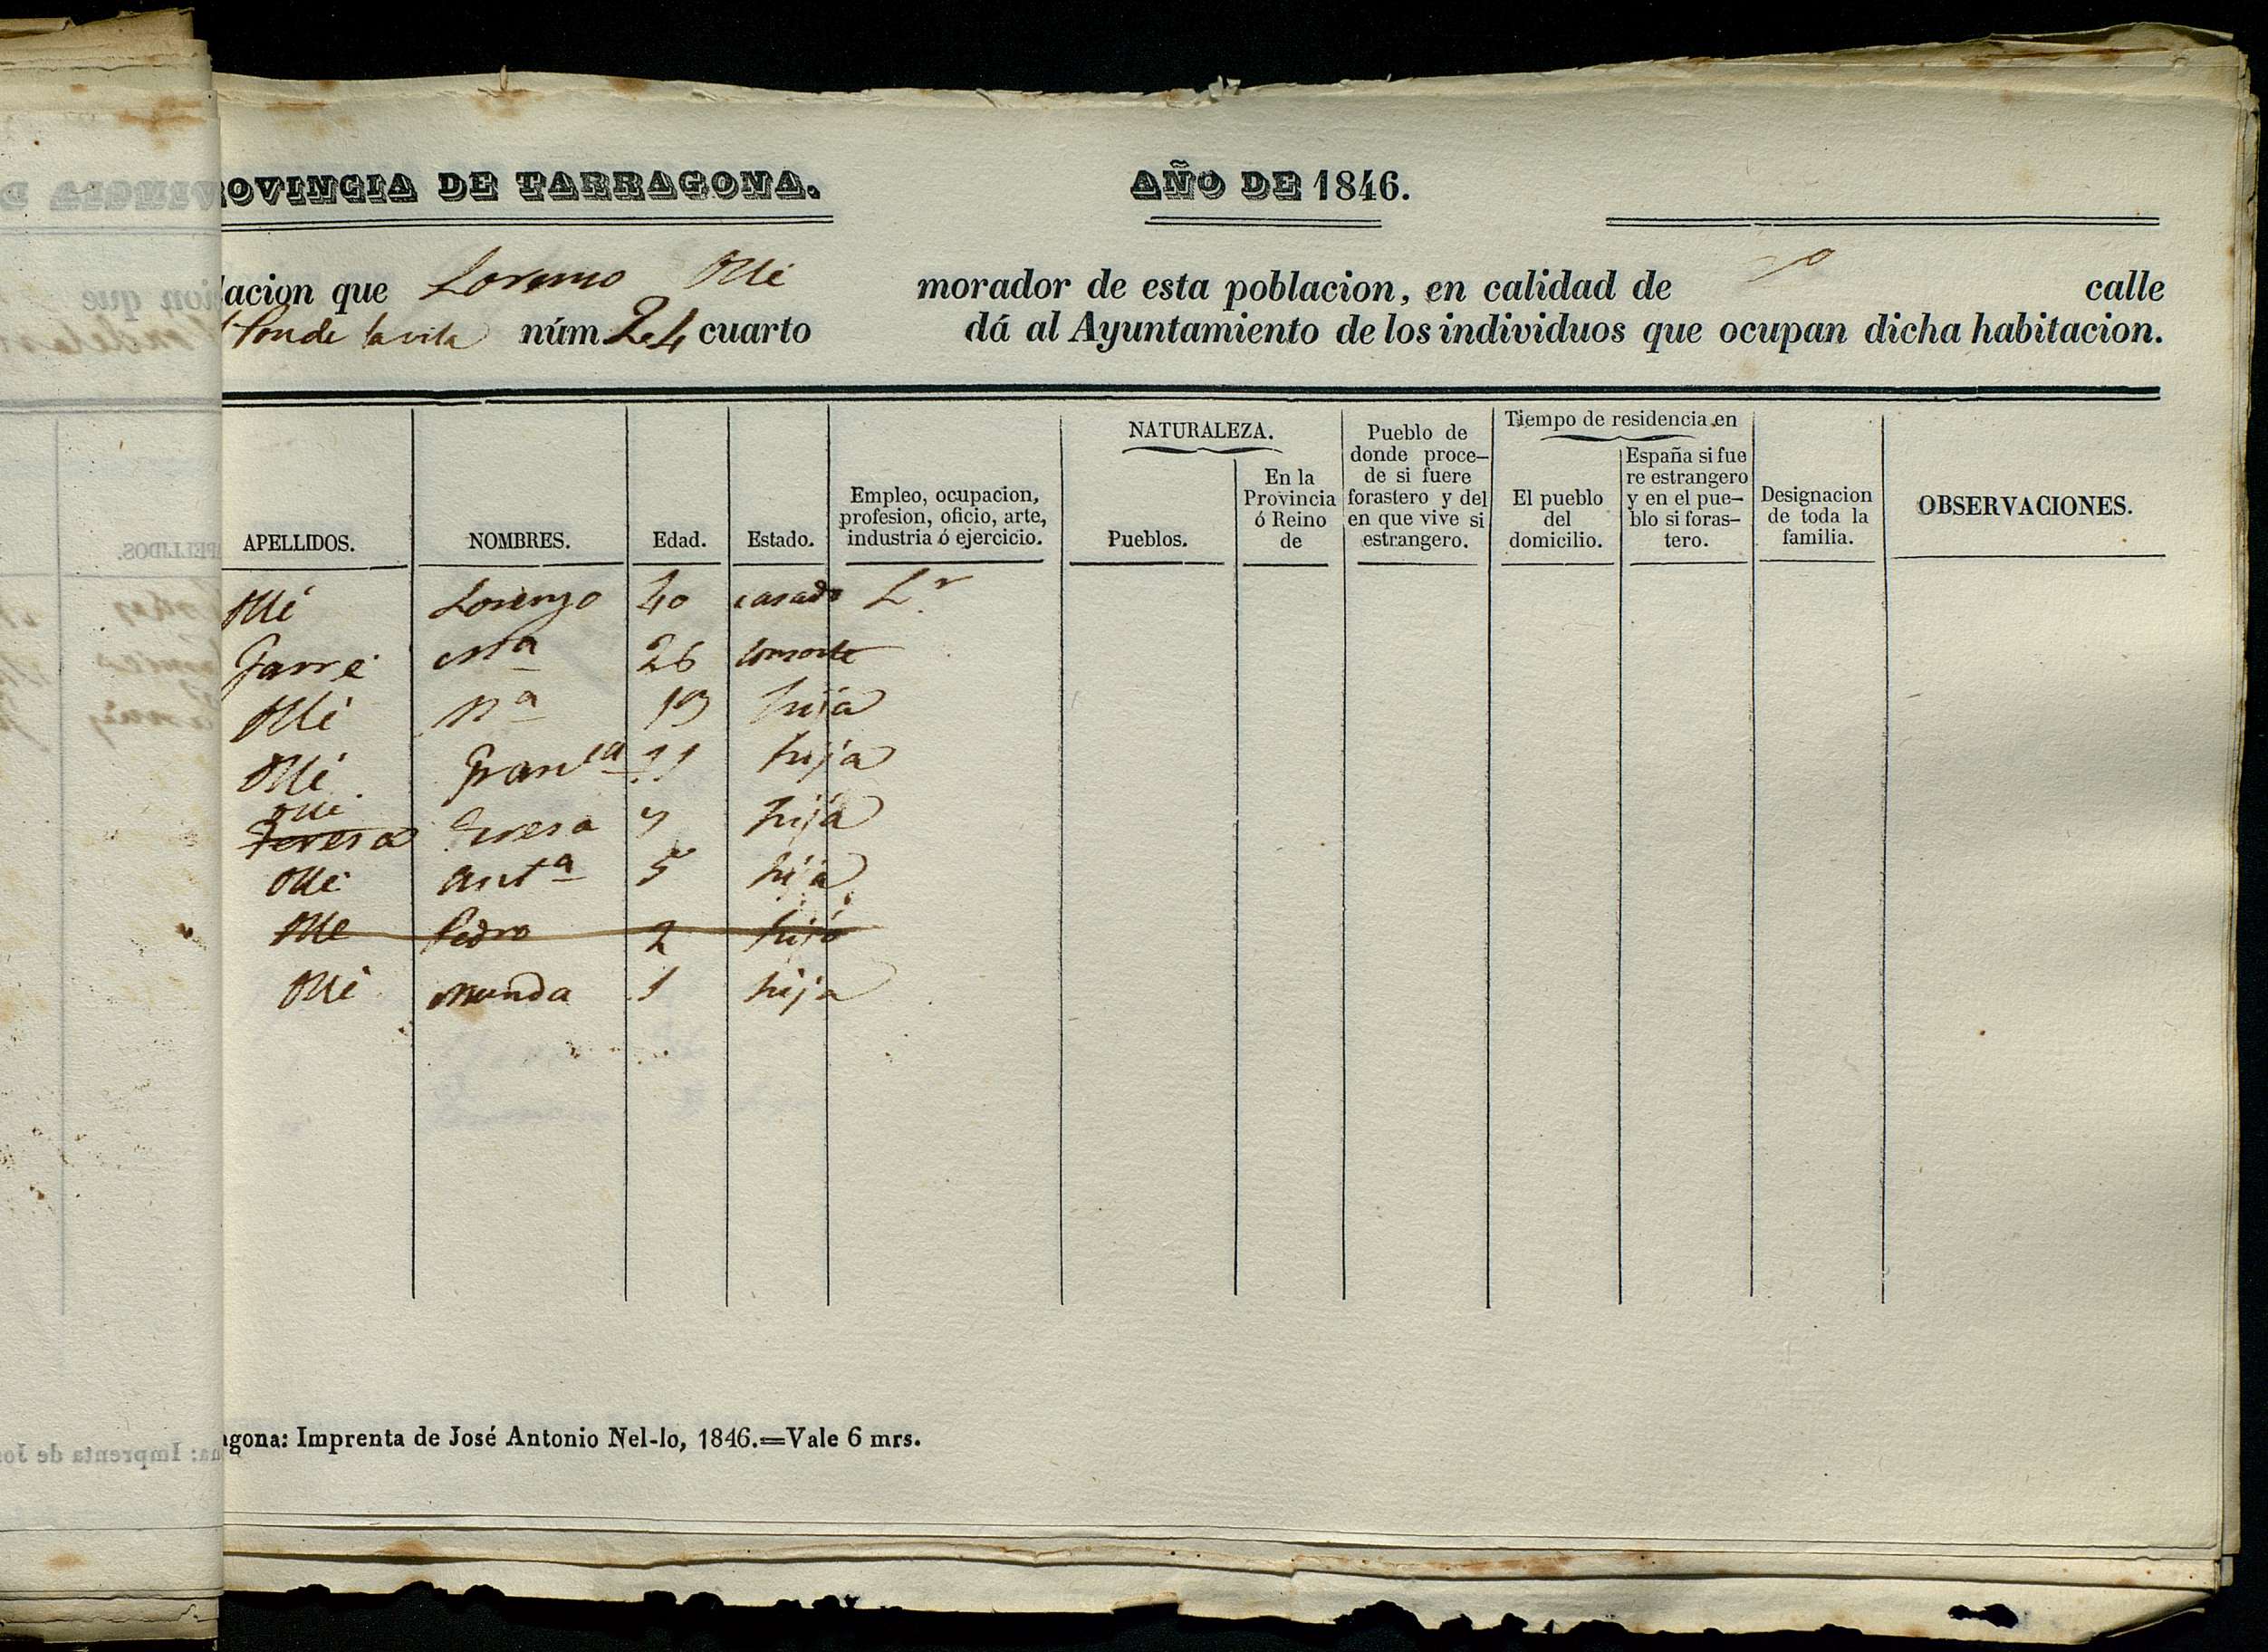 ROVINCIA DE TARRAGONA. AÑO DE 1846.
lacion que Lorenso Ollé morador de esta poblacion, en calidad de calle
fon de la vila núm 24 cuarto dá al Ayuntamiento de los individuos que ocupan dicha habitacion.
APELLIDOS. NOMBRES. Edad. Estado. Empleo, ocupacion, profesion, oficio, arte, industria ó ejercicio. NATURALEZA. Pueblos. En la Provincia ó Reino de Pueblo de donde proce-de si fuere forastero y del en que vive si estrangero. Tiempo de residencia en El pueblo del domicilio. España si fue re estrangero y en el pue-blo si foras-tero. Designacion de toda la familia. OBSERVACIONES.
Ollé Lorenzo 40 casado Lr
Garré Ma 26 consorte
Ollé Ma 13 hija
Ollé Franca 11 hija
Ollé
Teresa Teresa 7 hija
Ollé Anta 5 hija
Olle Pedro 2 hijo
Ollé Munda 1 hija
agona: Imprenta de José Antonio Nel-lo, 1846.=Vale 6 mrs.